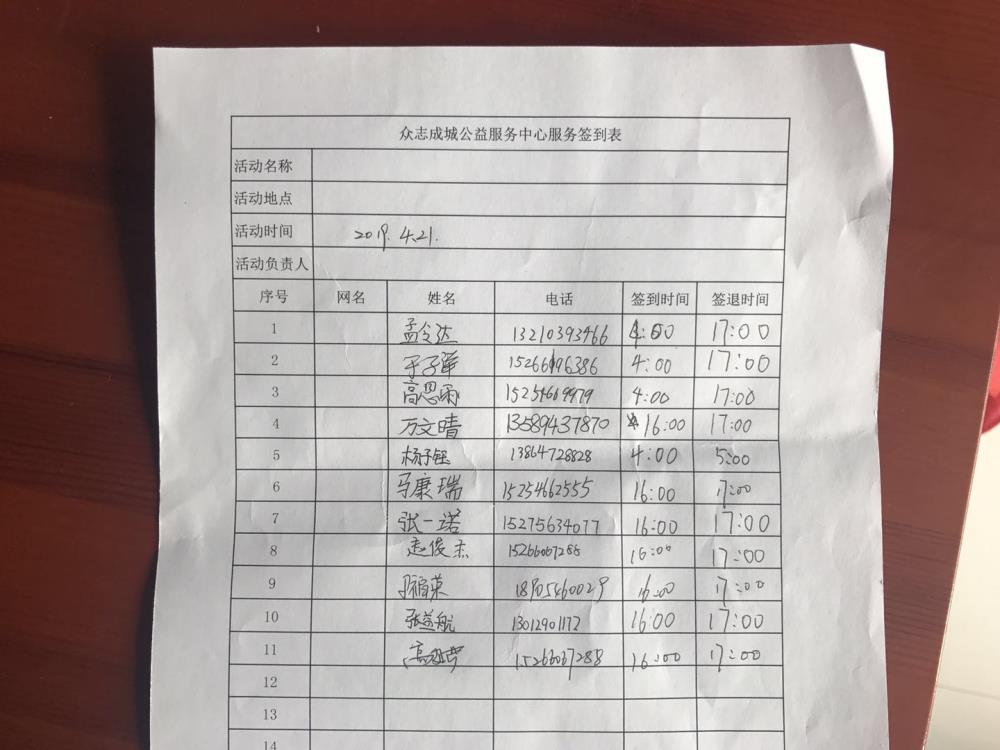 众志成城公益服务中心服务签到表
活动名称
活动地点
活动时间 2019.4.21.
活动负责人
序号 网名 姓名 电话 签到时间 签退时间
1 孟令达 13210393466 4:00 17:00
2 于子洋 15266196386 4:00 17:00
3 高恩雨 15254669979 4:00 17:00
4 万文晴 13589437870 16:00 17:00
5 杨子钰 13864728828 4:00 5:00
6 马康瑞 15254662555 16:00 17:00
7 张一诺 15275634077 16:00 17:00
8 赵俊杰 15266067288 16:00 17:00
9 18905460029 16:00 17:00
10 张益航 13012901172 16:00 17:00
11 15266067288 16:00 17:00
12
13
14